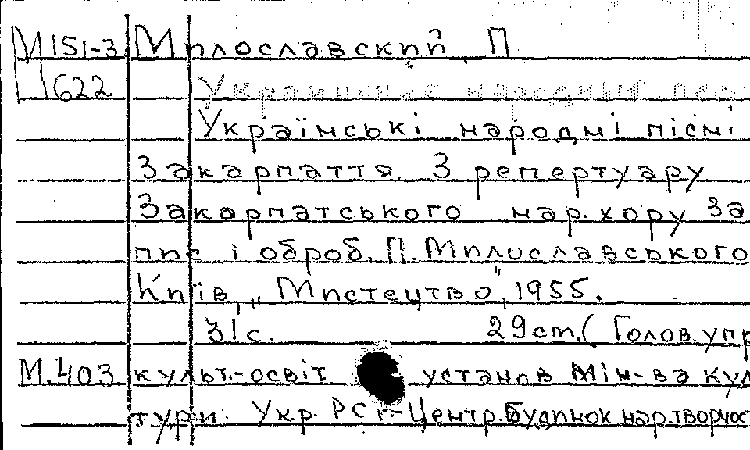 М151-3 Милославский П.
П622 Украинские народные пес
Українські народні пісні
Закарпаття. З репертуару
Закарпатського нар. хору За
пис і оброб. П. Милославського
Київ, „Мистецтво", 1955.
31с. 29 cm. (Голов.упр
М.403 культ.-освіт установ Мін-ва кул
тури Укр. РСР-Центр.будинок нар.творчос